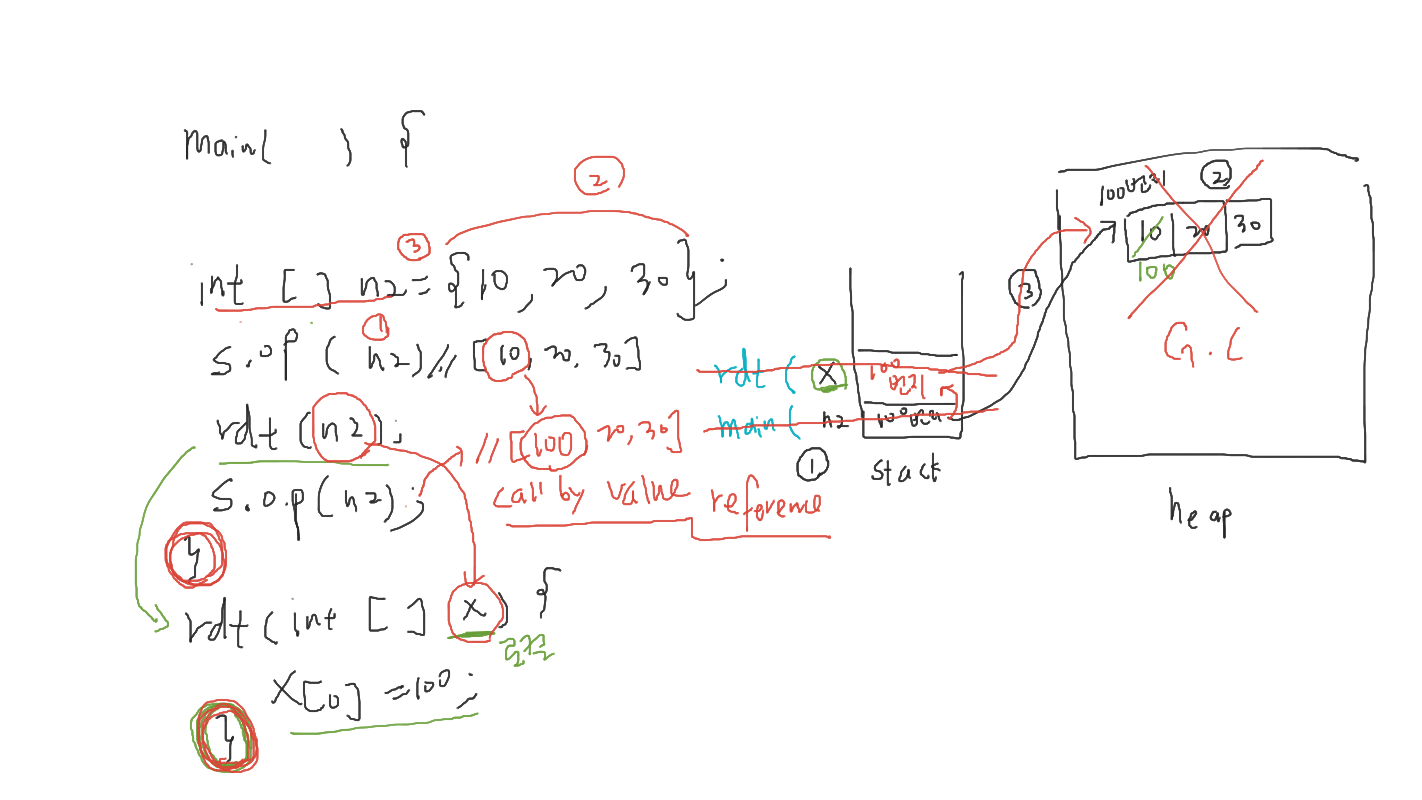 main( ) {
②
③
int [ ] n2 = {10, 20, 30};
①
s.op ( n2) // [10, 20, 30]
rdt (n2);
// [100 20, 30]
s.o.p (n2);
call by value reference
}
rdt ( int [ ] x ) {
로컬
x[0] = 100;
}
rdt ( x 100번지
main ( n2 100번지
①
stack
③
100번지 ②
10 20 30
100
G.C
heap